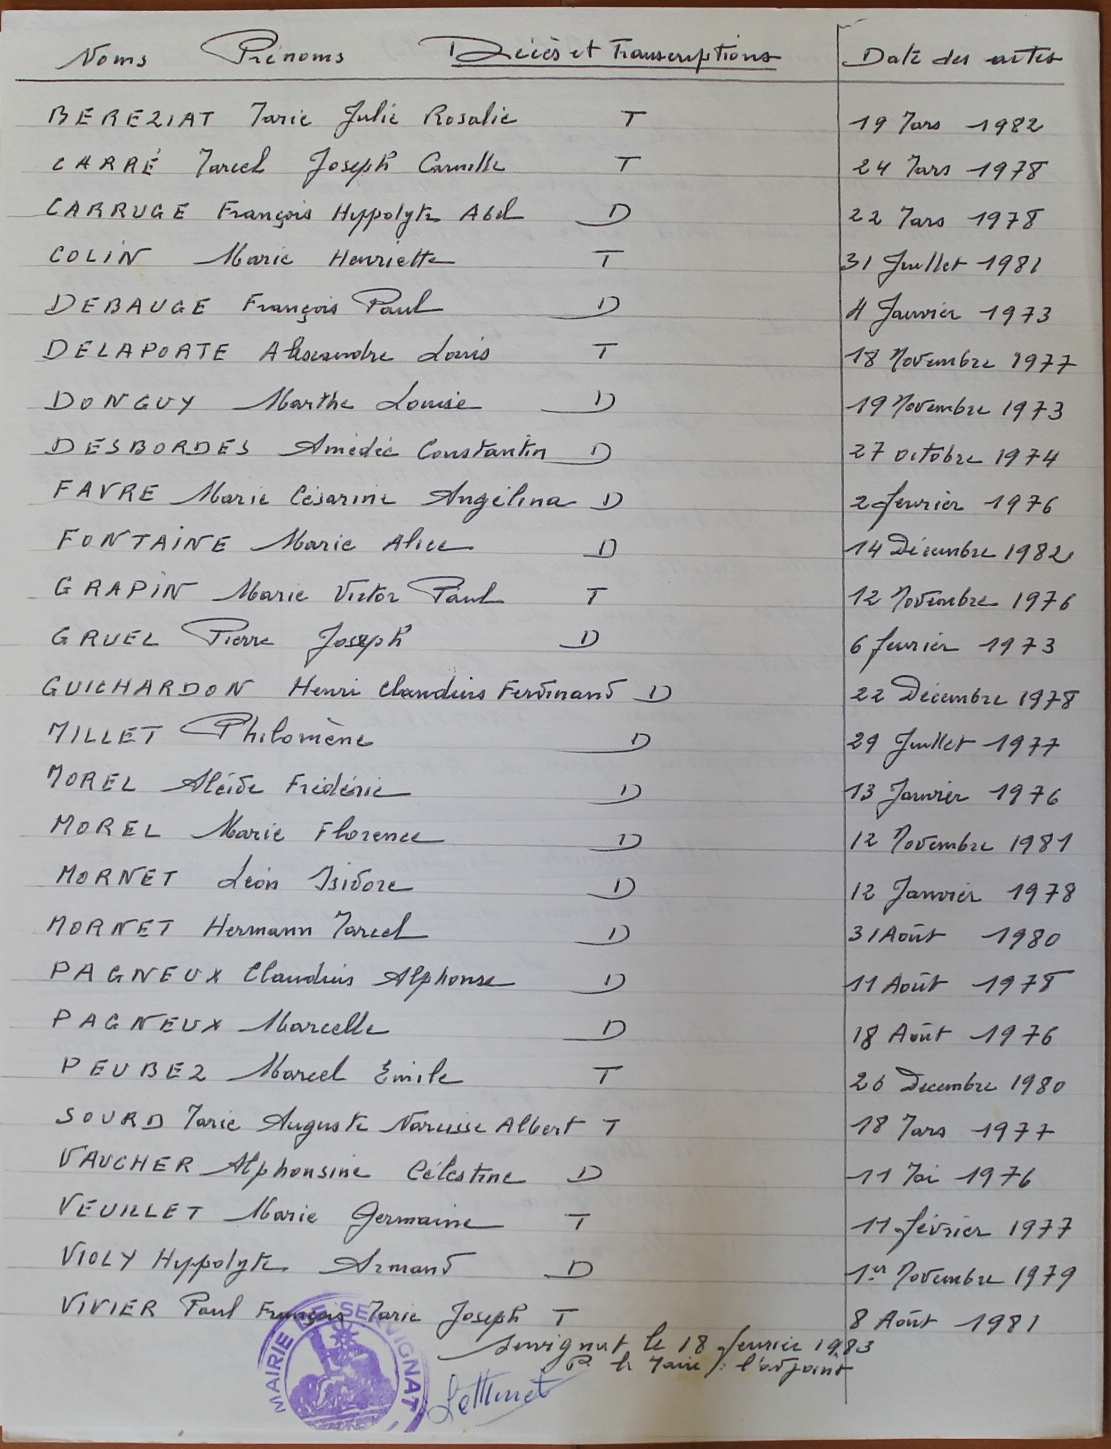 Noms Prénoms Décès et Transcriptions Date des actes
BEREZIAT Marie Julie Rosalie T 19 Mars 1982
CARRÉ Marcel Joseph Camille T 24 Mars 1978
CARRUGE François Hippolyte Abel D 22 Mars 1978
COLIN Marie Henriette T 31 Juillet 1981
DEBAUGE François Paul D 4 Janvier 1973
DELAPORTE Alexandre Louis T 18 Novembre 1977
DONGUY Marthe Louise D 19 Novembre 1973
DESBORDES Amédée Constantin D 27 octobre 1974
FAVRE Marie Césarine Angélina D 2 fevrier 1976
FONTAINE Marie Alice D 14 Décembre 1982
GRAPIN Marie Victor Paul T 12 Novembre 1976
GRUEL Pierre Joseph D 6 fevrier 1973
GUICHARDON Henri Claudius Ferdinand D 22 Décembre 1978
MILLET Philomène D 29 Juillet 1977
MOREL Alcide Frédéric D 13 Janvier 1976
MOREL Marie Florence D 12 Novembre 1981
MORNET Léon Isidore D 12 Janvier 1978
MORNET Hermann Marcel D 31 Août 1980
PAGNEUX Claudius Alphonse D 11 Août 1978
PAGNEUX Marcelle D 18 Août 1976
PEUBEZ Marcel Emile T 26 Decembre 1980
SOURD Marie Auguste Narcisse Albert T 18 Mars 1977
VAUCHER Alphonsine Célestine D 11 Mai 1976
VEUILLET Marie Germaine T 11 février 1977
VIOLY Hippolyte Armand D 1er Novembre 1979
VIVIER Paul François Marie Joseph T 8 Août 1981
Servignat le 18 fevrier 1983
P. le Maire : l'adjoint
MAIRIE DE SERVIGNAT